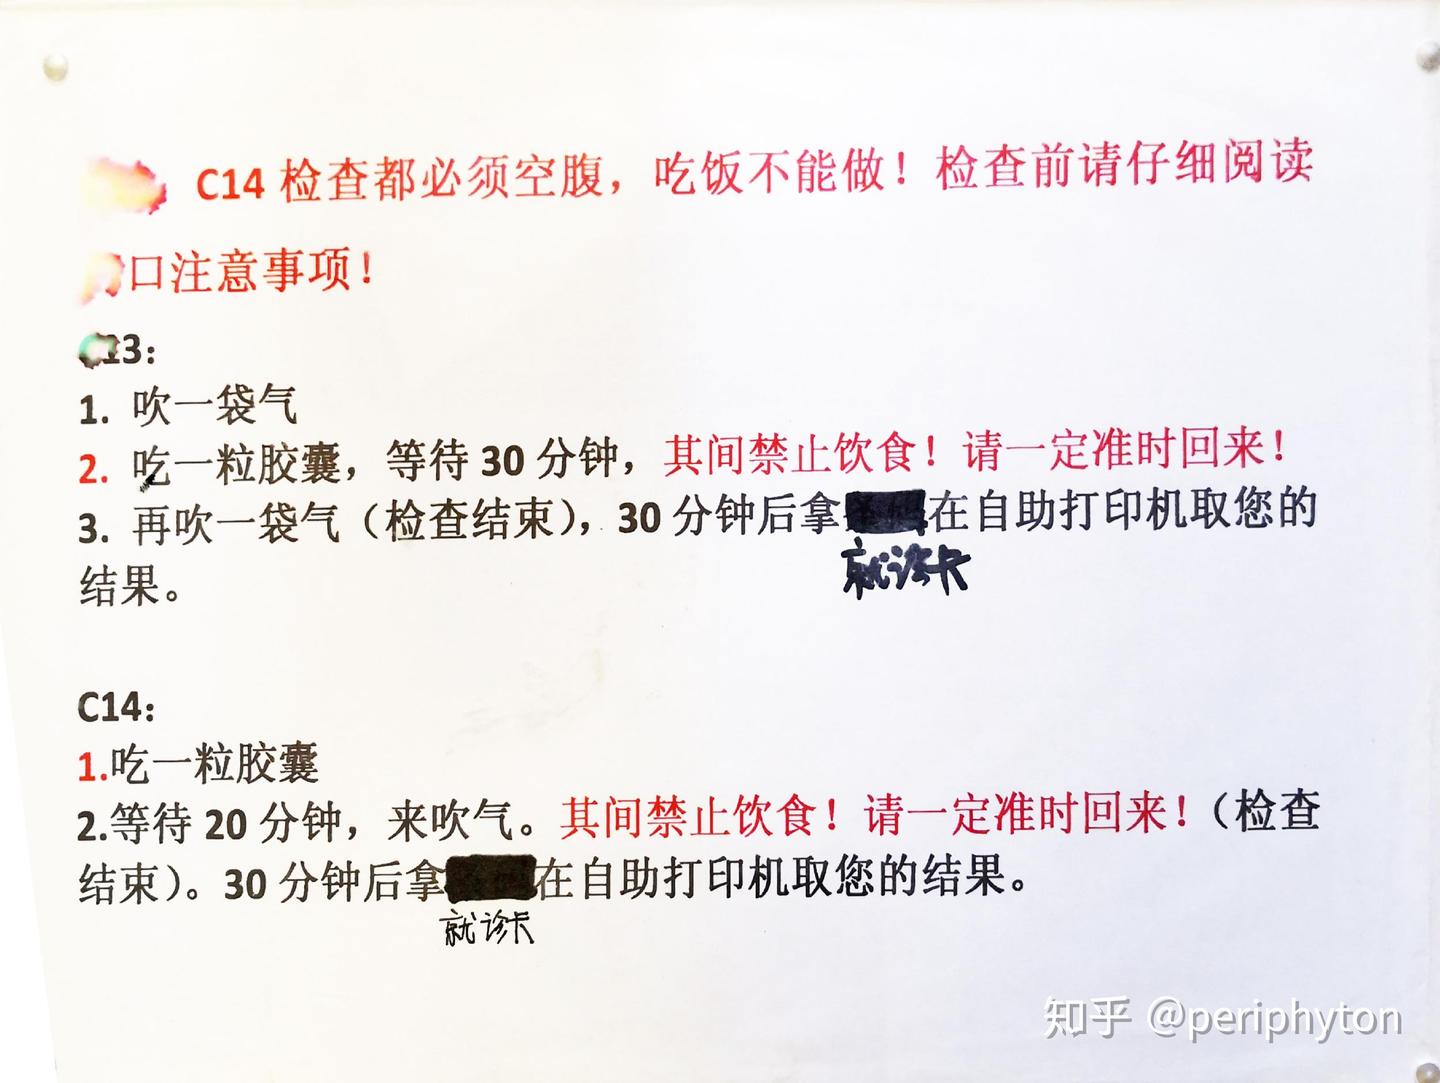 C14 检查都必须空腹，吃饭不能做！检查前请仔细阅读
口注意事项！
C13：
1. 吹一袋气
2. 吃一粒胶囊，等待 30 分钟，其间禁止饮食！请一定准时回来！
3. 再吹一袋气（检查结束），30 分钟后拿在自助打印机取您的
就诊卡
结果。
C14：
1.吃一粒胶囊
2.等待 20 分钟，来吹气。其间禁止饮食！请一定准时回来！（检查
结束）。30 分钟后拿在自助打印机取您的结果。
就诊卡
知乎 @periphyton